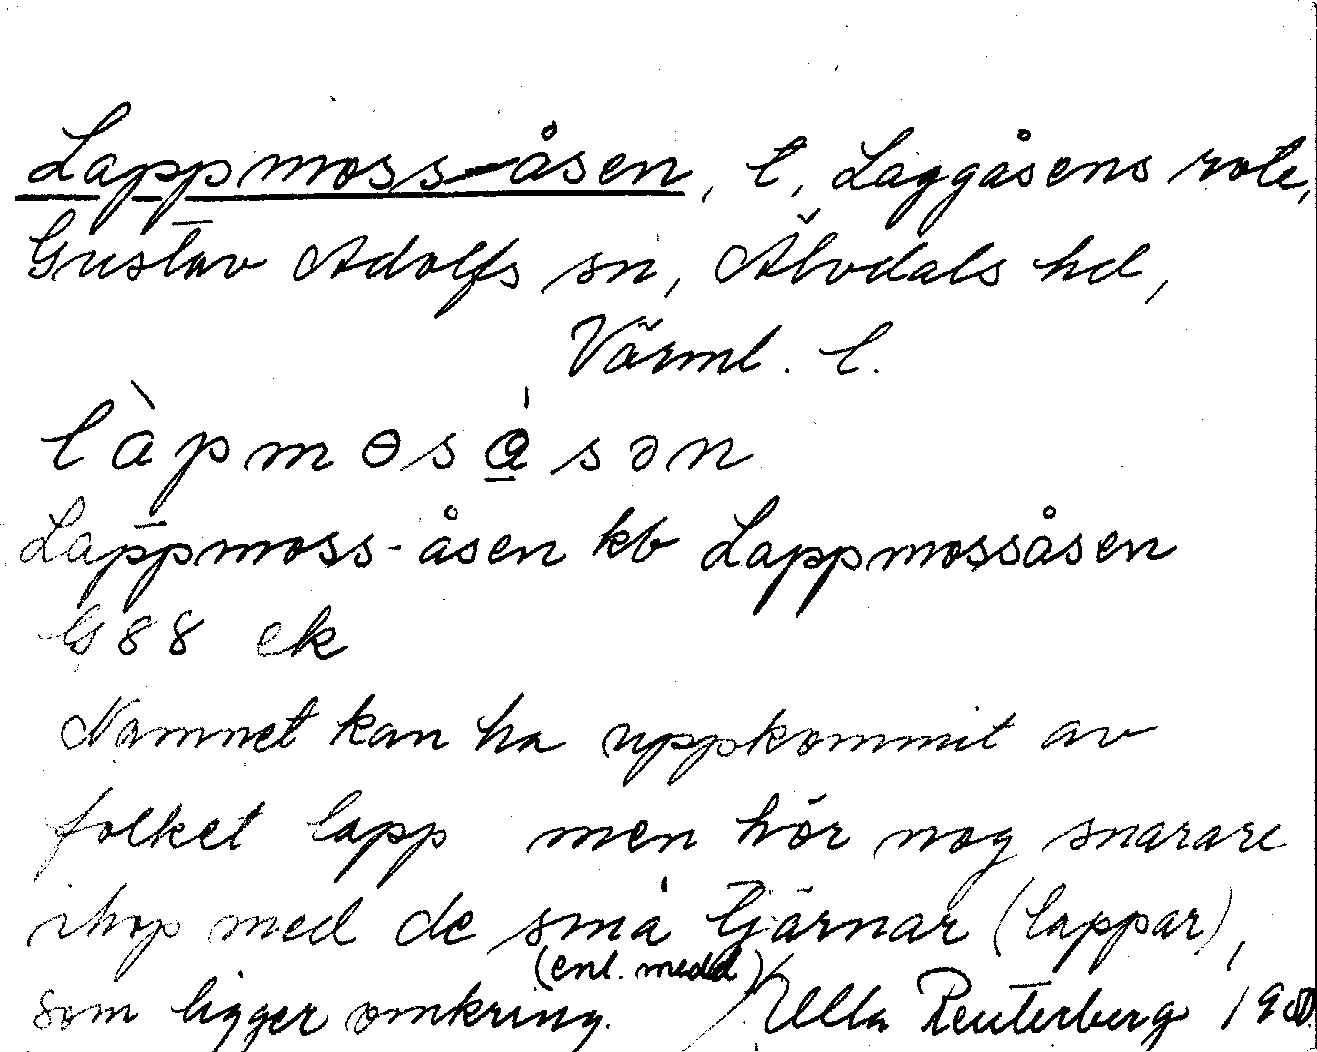 Lappmoss-åsen, t, Laggåsens rote,
Gustav Adolfs sn, Älvdals hd,
Värml. l.
làpmɵsa̱̍sən
Lappmoss-åsen kb Lappmossåsen
G88 ek
Namnet kan ha uppkommit av
folket lapp men hör nog snarare
ihop med de små tjärnar (lappar),
(enl. medd)
som ligger omkring. / Ulla Reuterberg